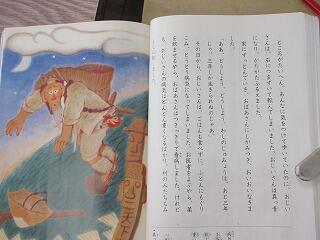 ところがたいへん。あんなに気をつけて歩いていたのに、おじい
さんは、石につまずいて転んでしまいました。おじいさんは真っ青
になり、がたがたふるえました。
家にすっとんでいき、おばあさんにしがみつき、おいおいなきま
した。
「ああ、どうしよう、どうしよう。わしのじゅみょうは、あと三年
じゃ。三年しか生きられぬのじゃあ。」
その日から、おじいさんは、ごはんも食べずに、ふとんにもぐり
こみ、とうとう病気になってしまいました。お医者をよぶやら、薬
を飲ませるやら、おばあさんはつきっきりで看病しました。けれど
も、おじいさんの病気はどんどん重くなるばかり。村の人たちもみ